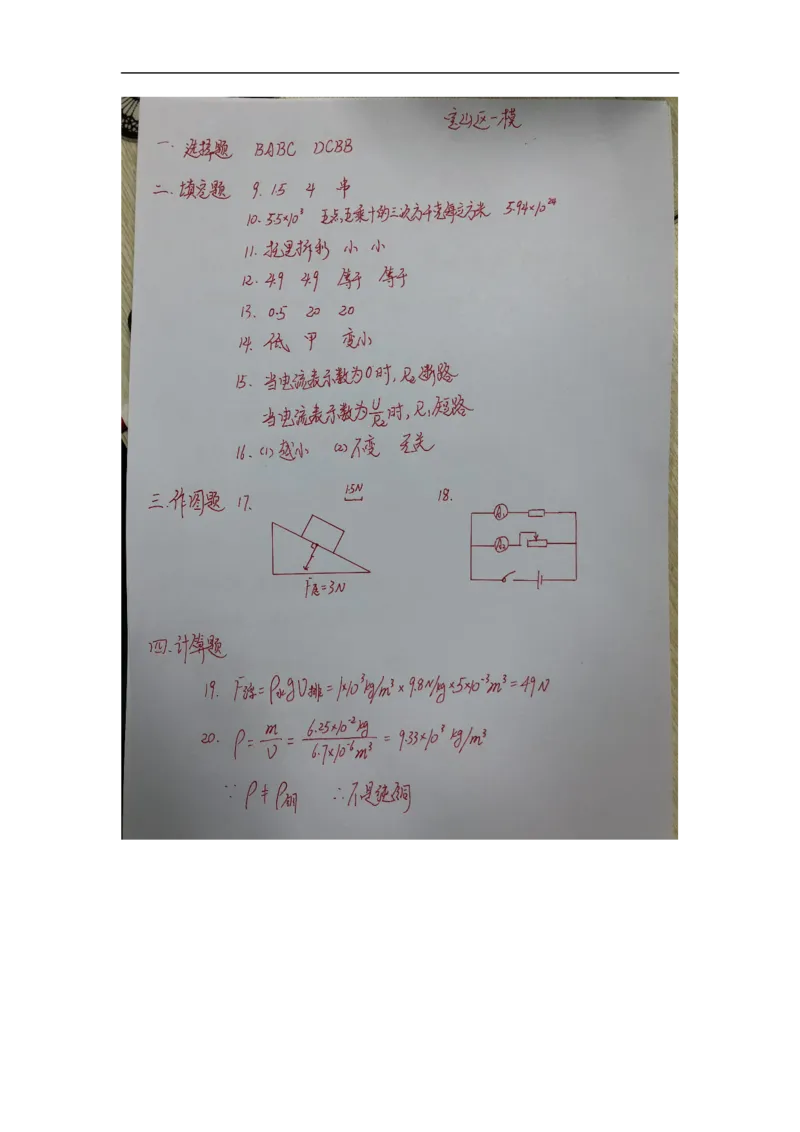 宝山区一模
一. 选择题 BABC DCBB
二. 填空题 9. 1.5 4 串
10. 5.5×10³ 五点五乘十的三次方千克每立方米 5.94×10²⁴
11. 托里拆利 小 小
12. 4.9 4.9 等于 等于
13. 0.5 20 20
14. 低 甲 变小
15. 当电流表示数为0时, R₂断路
当电流表示数为U/R₂时, R₁短路
16. (1) 越小 (2) 不变 无关
三. 作图题 17. 1.5N 18.
A₁
A₂
F压=3N
四. 计算题
19. F浮=ρ水gV排=1×10³kg/m³×9.8N/kg×5×10⁻³m³=49N
20. ρ=m/V=6.25×10⁻²kg/6.7×10⁻⁶m³=9.33×10³kg/m³
∵ρ≠ρ铜 ∴不是纯铜